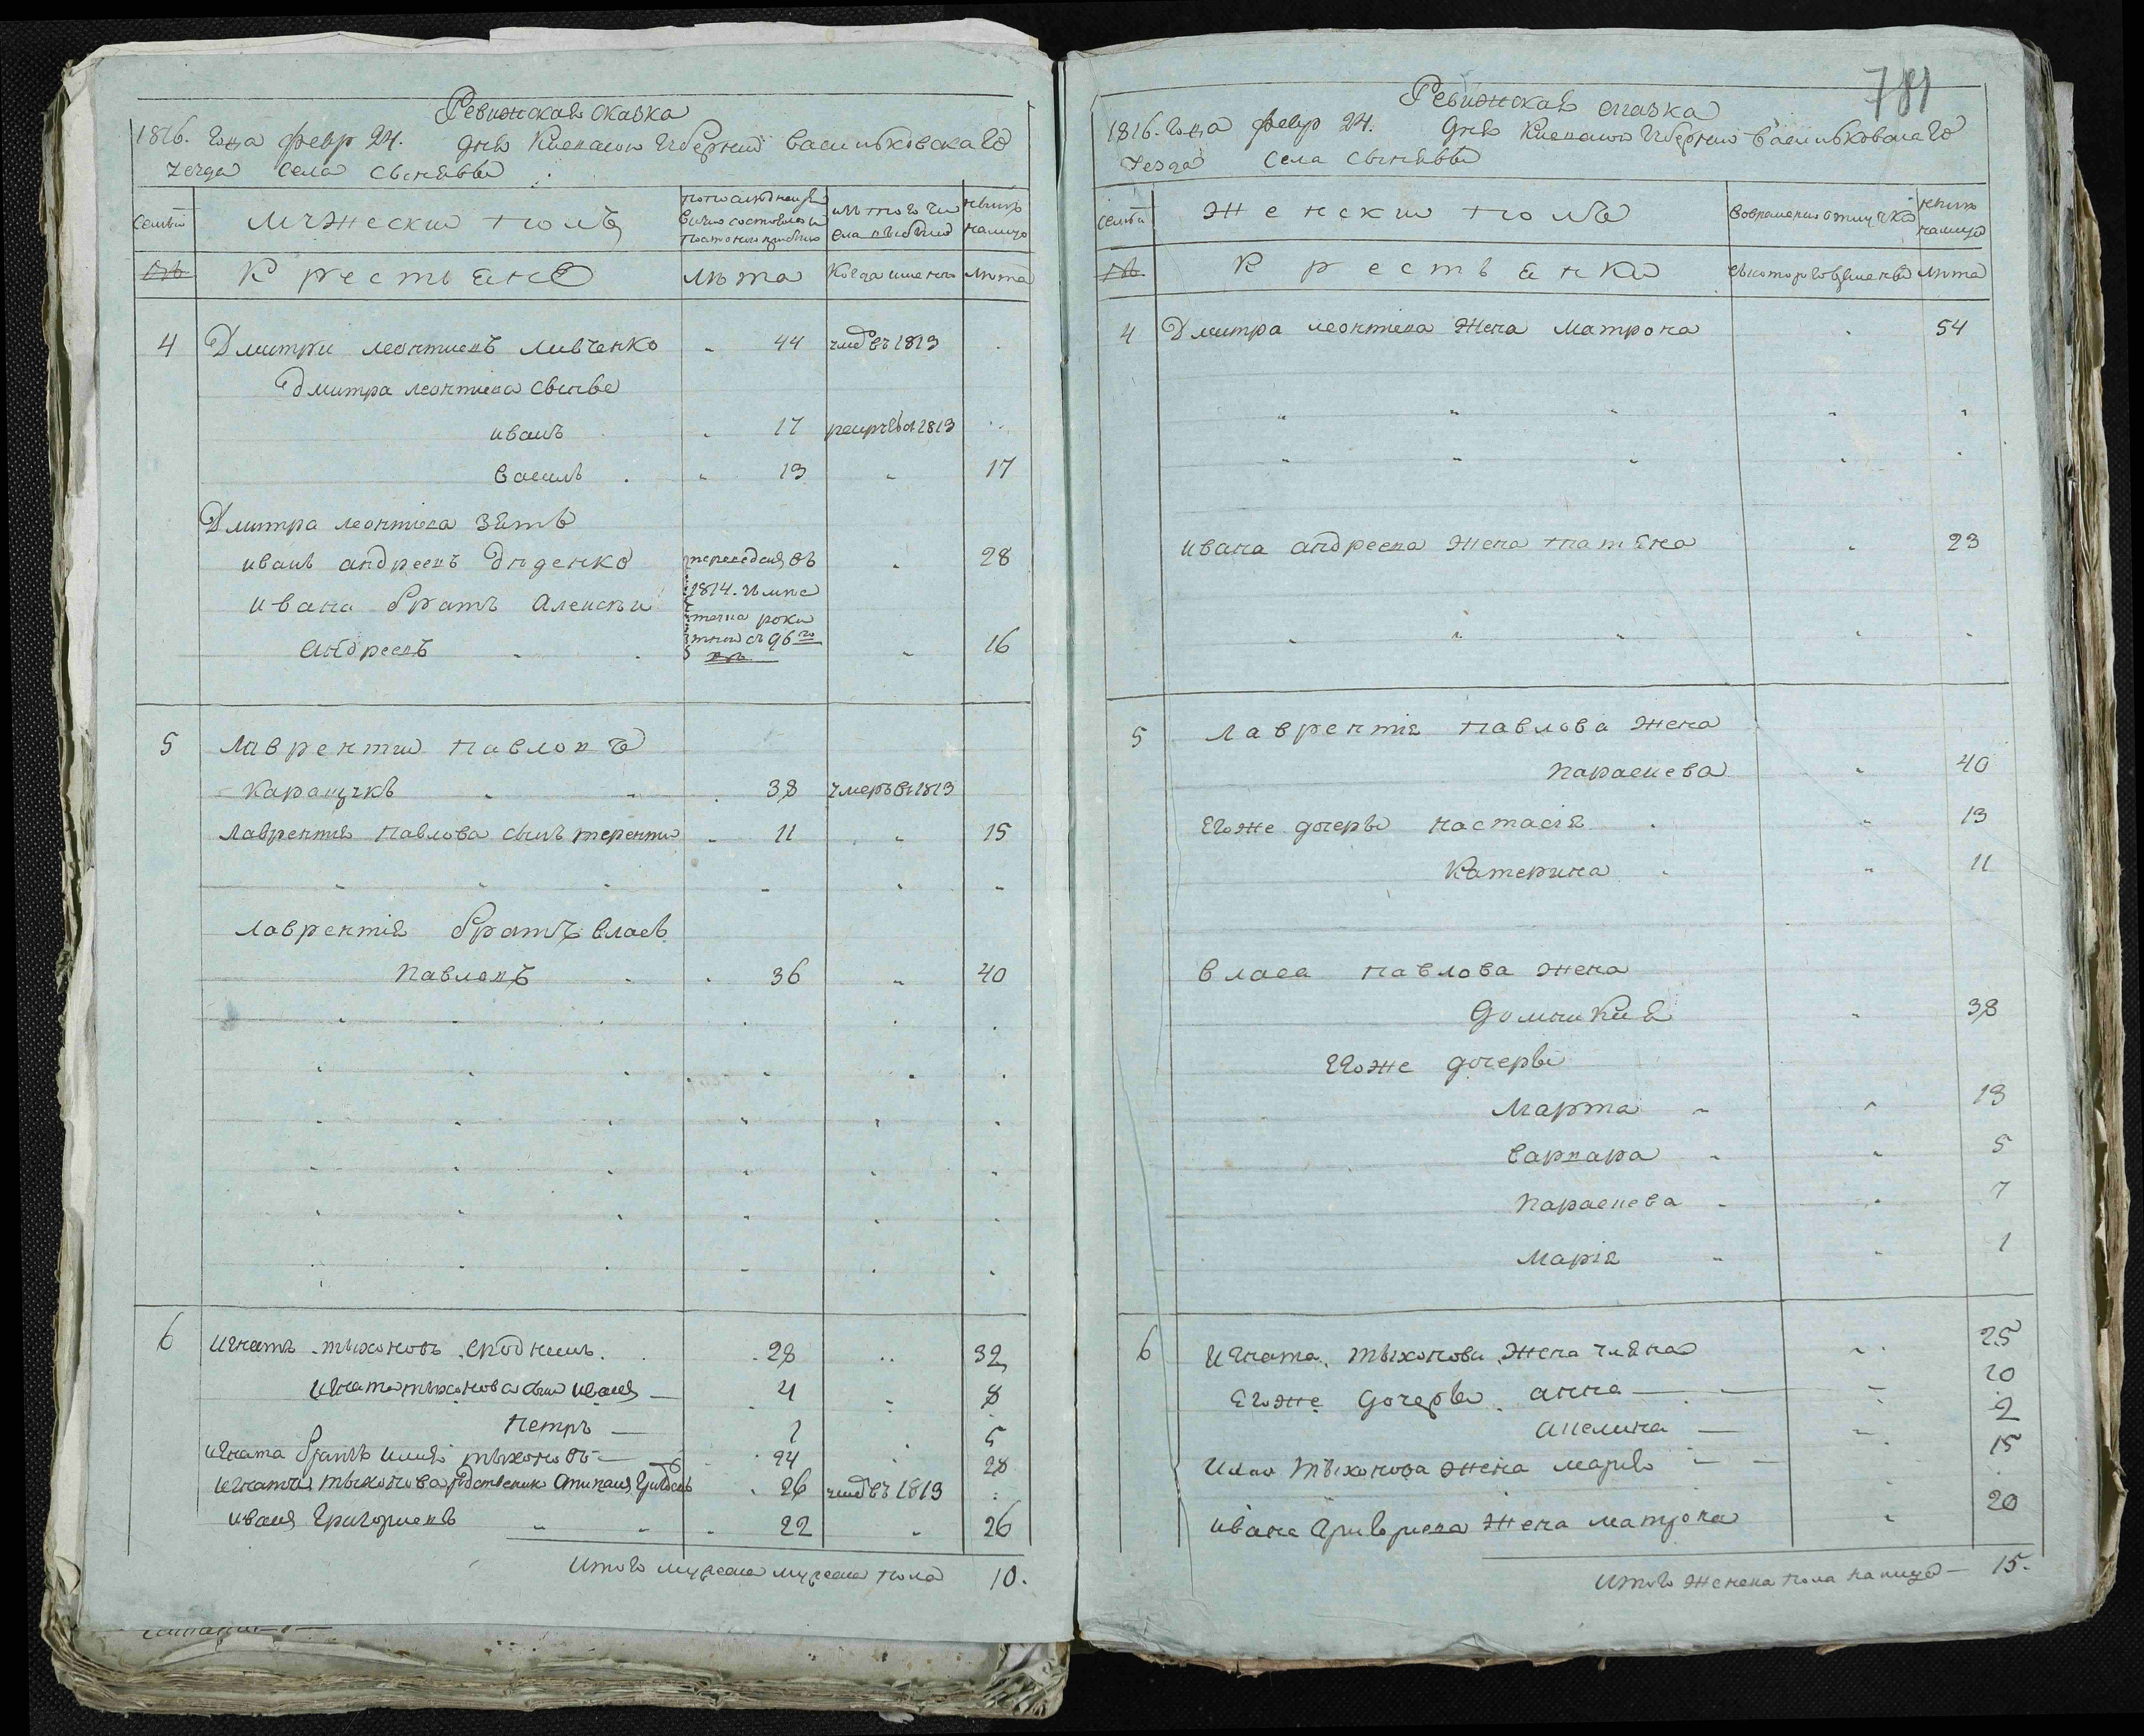 Ревизская сказка
1816. года февр 24. дня Киевской Губернии Васильковскаго
уезда села Свинявы
семьи
Мужески полъ
по последней ревизии состояло и после оной прибыло
изъ того числа выбыло
ныне налицо
№
Крестьяне
лета
когда именно
лета
4 Дмитри леонтиевъ Ливченко 44 умре въ 1813
Дмитра леонтиева сынве
иванъ 17 рекрутъ въ 1813
василь 13 17
Дмитра леонтиева зять
иванъ андреевъ Диденко переведенъ въ 28
1814. имъ
ивана братъ алексъи
андреевъ съ 96го № 16
5 Лаврентии павловъ
Каращукъ 38 умеръ въ 1813
лаврентия павлова сынъ терентии 11 15
лаврентия братъ власъ
павловъ 36 40
6 игнатъ тыхоновъ 28 32
игната тыхонова сынъ иванъ 4 8
петръ 1 5
игната братъ илия тыхоновъ 24 28
игната тыхонова родственик Степанъ Григориевъ 26 умре въ 1813
иванъ Григориевъ 22 26
Итого мужеска пола 10.
781
Ревизская сказка
1816. года февр 24. дня Киевской Губернии Васильковскаго
уезда села Свинявы
семьи
Женски полъ
во временной отлучке
ныне налицо
№
Крестьянки
съ котораго времени
лета
4 Дмитра леонтиева жена Матрона 54
ивана андреева жена татяна 23
5 лаврентия павлова жена
параскева 40
Егоже дочеры настасия 13
Катерина 11
власа павлова жена
Домникия 38
Егоже дочеры
Марта 13
варвара 5
параскева 7
Мария 1
6 игната тыхонова жена уляна 25
Егоже дочеры анна 10
акелина 2
илии тыхонова жена мария 15
ивана Григориева жена матрона 20
Итого женска пола налицо 15.